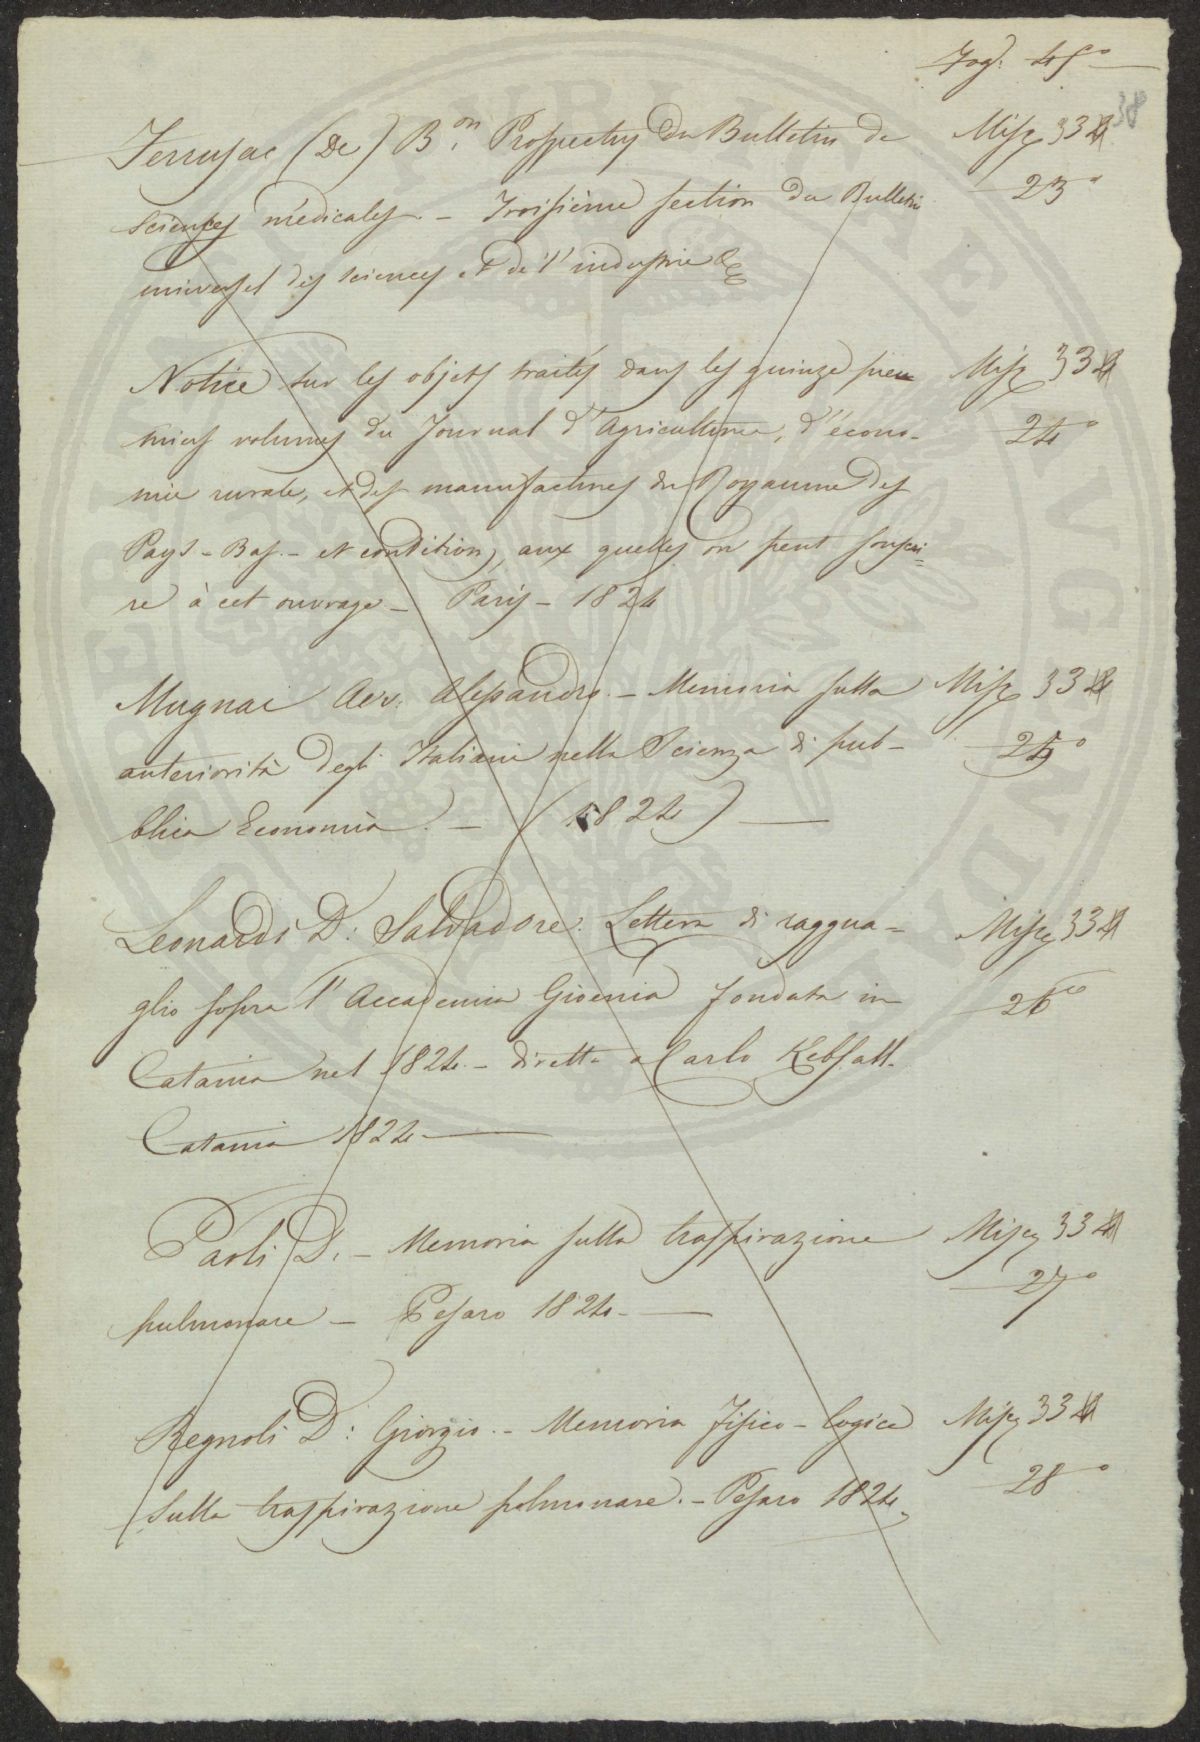 Fogl: 45°
38
Ferrusac (De) B.on Prospectus du Bulletin de Misc 334
sciences médicales. - Troisième section du Bulletin 23°
universel des sciences et de l'industrie &c
Notice sur les objets traités dans les quinze pre- Misc 334
miers volumes du Journal d'Agriculture, d'écono- 24°
mie rurale, et des manufactures du Royaume des
Pays-Bas. - et conditions, aux quelles on peut souscri=
re à cet ouvrage - Paris - 1824
Mugnai Avv: Alessandro. - Memoria sulla Misc 334
anteriorità degli Italiani nella Scienza di pub- 25°
blica Economia. - (1824)
Leonardi D: Salvadore. Lettera di raggua= Misc 334
glio sopra l'Accademia Gioenia fondata in 26°
Catania nel 1824. - diretta a Carlo Kebsall.
Catania 1824
Paoli D. - Memoria sulla traspirazione Misc 334
pulmonare - Pesaro 1824. 27°
Regnoli D: Giorgio. - Memoria Fisico-logica Misc 334
sulla traspirazione polmonare. - Pesaro 1824. 28°